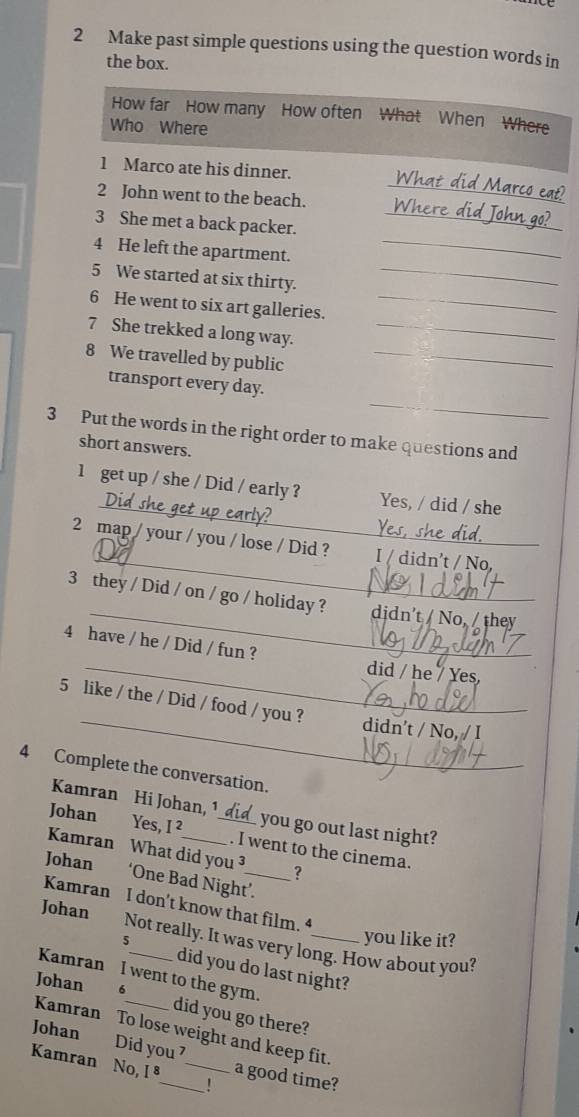 2 Make past simple questions using the question words in
the box.
How far How many How often What When Where
Who Where
1 Marco ate his dinner. What did Marco eat?
2 John went to the beach. Where did John go?
3 She met a back packer.
4 He left the apartment.
5 We started at six thirty.
6 He went to six art galleries.
7 She trekked a long way.
8 We travelled by public
transport every day.
3 Put the words in the right order to make questions and
short answers.
1 get up / she / Did / early ? Yes, / did / she
Did she get up early? Yes, she did.
2 map / your / you / lose / Did ? I / didn't / No,
No, I didn't
3 they / Did / on / go / holiday ? didn't / No, / they
4 have / he / Did / fun ? did / he / Yes,
5 like / the / Did / food / you ? didn't / No, / I
4 Complete the conversation.
Kamran Hi Johan, 1 did you go out last night?
Johan Yes, I 2 . I went to the cinema.
Kamran What did you 3 ?
Johan 'One Bad Night'.
Kamran I don't know that film. 4 you like it?
Johan Not really. It was very long. How about you?
5 did you do last night?
Kamran I went to the gym.
Johan 6 did you go there?
Kamran To lose weight and keep fit.
Johan Did you 7 a good time?
Kamran No, I 8 !